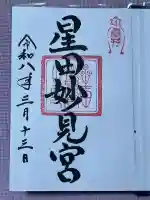 星田妙見宮
令和八年三月十三日